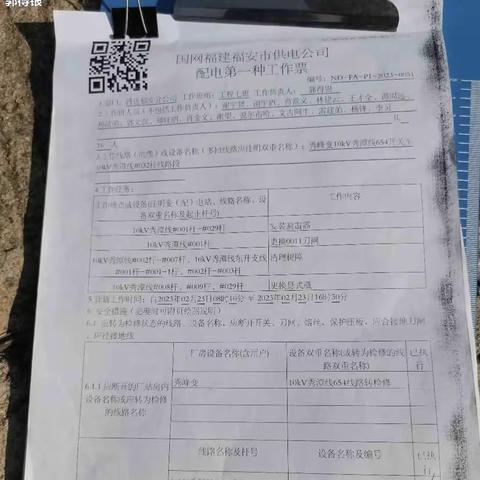 郭得银
国网福建福安市供电公司
配电第一种工作票
编号：ND-FA-P1-2023-0031
1.部门：
工作班组：工程七班 工作负责人：郭得银
2.工作班人员（不包括工作负责人）：
16 人
3.停电线路（沿途）或设备名称（多回线路应注明双重名称）：秀峰变10kV秀潭线654开关至
10kV秀潭线#032杆线路段
4.工作任务：
工作地点或设备[注明变（配）电站、线路名称、设备双重名称及起止杆号]
工作内容
10kV秀潭线#001杆-#029杆
安装故障器
10kV秀潭线#001杆
更换0011刀闸
10kV秀潭线#002杆-#007杆、10kV秀潭线东升支线#001杆-#001-1杆、#002杆-#003杆
清理树障
10kV秀潭线#008杆、#009杆、#029杆
更换悬式瓶
5.计划工作时间：自2023年02月23日08时10分 至 2023年02月23日16时30分
6.安全措施（必要时可附页绘图说明）
6.1 应转为检修状态的线路、设备名称，应断开开关、刀闸、熔丝、保护压板，应合接地刀闸
，应挂接地线
6.1.1 应断开的厂站房内设备名称或应转为检修的线路名称
厂房设备名称(含用户)
设备双重名称(或转为检修的线路双重名称)
已执行
秀峰变
10kV秀潭线654线路转检修
线路名称及杆号
设备名称及编号
已执行